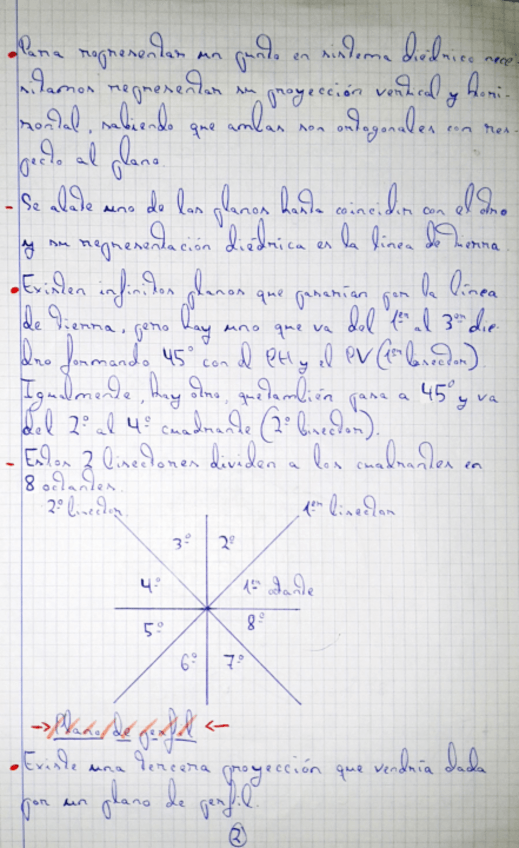 Para representar un punto en sistema diédrico nece-
sitamos representar su proyección vertical y hori-
zontal, sabiendo que ambas son ortogonales con res-
pecto al plano.
- Se abate uno de los planos hasta coincidir con el otro
y su representación diédrica es la línea de tierra.
Existen infinitos planos que pasarían por la línea
de tierra, pero hay uno que va del 1er al 3er die-
dro formando 45° con el PH y el PV (1er bisector)
Igualmente, hay otro, que también pasa a 45° y va
del 2º al 4º cuadrante (2º bisector).
- Estos 2 bisectores dividen a los cuadrantes en
8 octantes.
2º bisector 1er bisector
3º 2º
4º 1er octante
5º 8º
6º 7º
→ Plano de perfil ←
Existe una tercera proyección que vendría dada
por un plano de perfil.
2